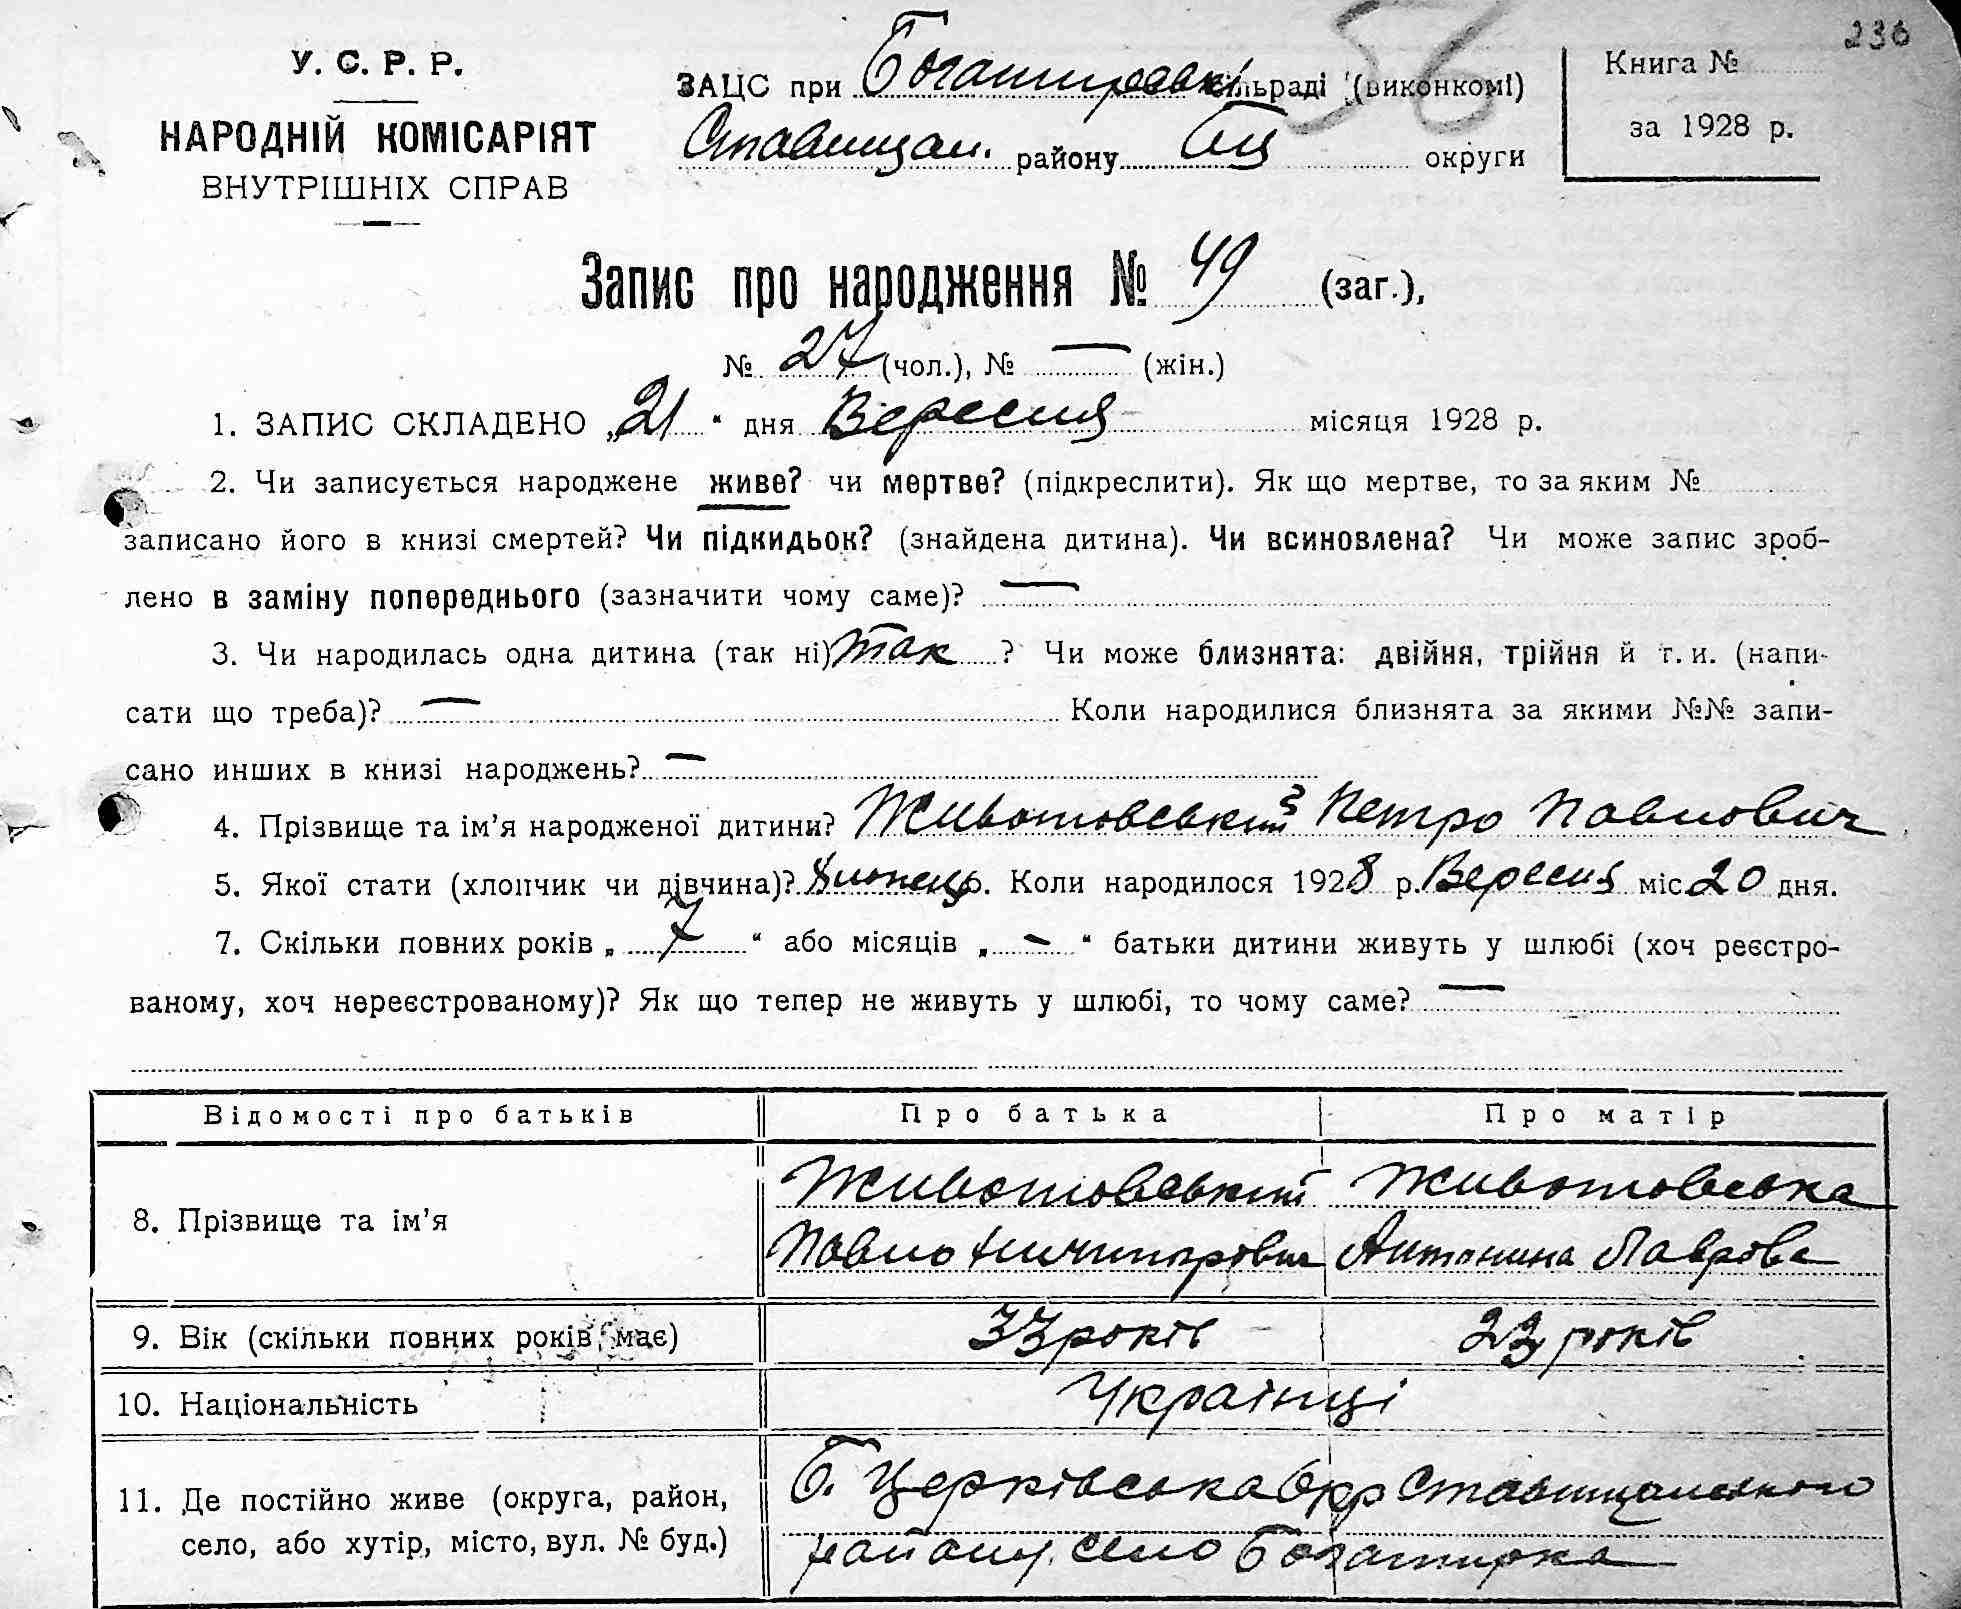 236
56
У. С. Р. Р.
НАРОДНІЙ КОМІСАРІЯТ
ВНУТРІШНІХ СПРАВ
ЗАЦС при Богатирській сільраді (виконкомі)
Ставищан. району БЦ округи
Книга №
за 1928 р.
Запис про народження № 49 (заг.),
№ 27 (чол.), № — (жін.)
1. ЗАПИС СКЛАДЕНО „21“ дня Вересня місяця 1928 р.
2. Чи записується народжене живе? чи мертве? (підкреслити). Як що мертве, то за яким №
записано його в книзі смертей? Чи підкидьок? (знайдена дитина). Чи всиновлена? Чи може запис зроб-
лено в заміну попереднього (зазначити чому саме)? —
3. Чи народилась одна дитина (так ні) так ? Чи може близнята: двійня, трійня й т. и. (напи-
сати що треба)? — Коли народилися близнята за якими №№ запи-
сано инших в книзі народжень? —
4. Прізвище та ім’я народженої дитини? Животовський Петро Павлович
5. Якої стати (хлопчик чи дівчина)? Хлопець. Коли народилося 1928 р. Вересня міс. 20 дня.
7. Скільки повних років „ 7 “ або місяців „ — “ батьки дитини живуть у шлюбі (хоч реєстро-
ваному, хоч нереєстрованому)? Як що тепер не живуть у шлюбі, то чому саме? —
Відомості про батьків Про батька Про матір
8. Прізвище та ім’я
Животовський Животовська
Павло Ничипорович Антонина Лаврова
9. Вік (скільки повних років має) 33 років 23 років
10. Національність Українці
11. Де постійно живе (округа, район,
село, або хутір, місто, вул. № буд.)
Б. Церківська Окр Ставищанського
району село Богатирка